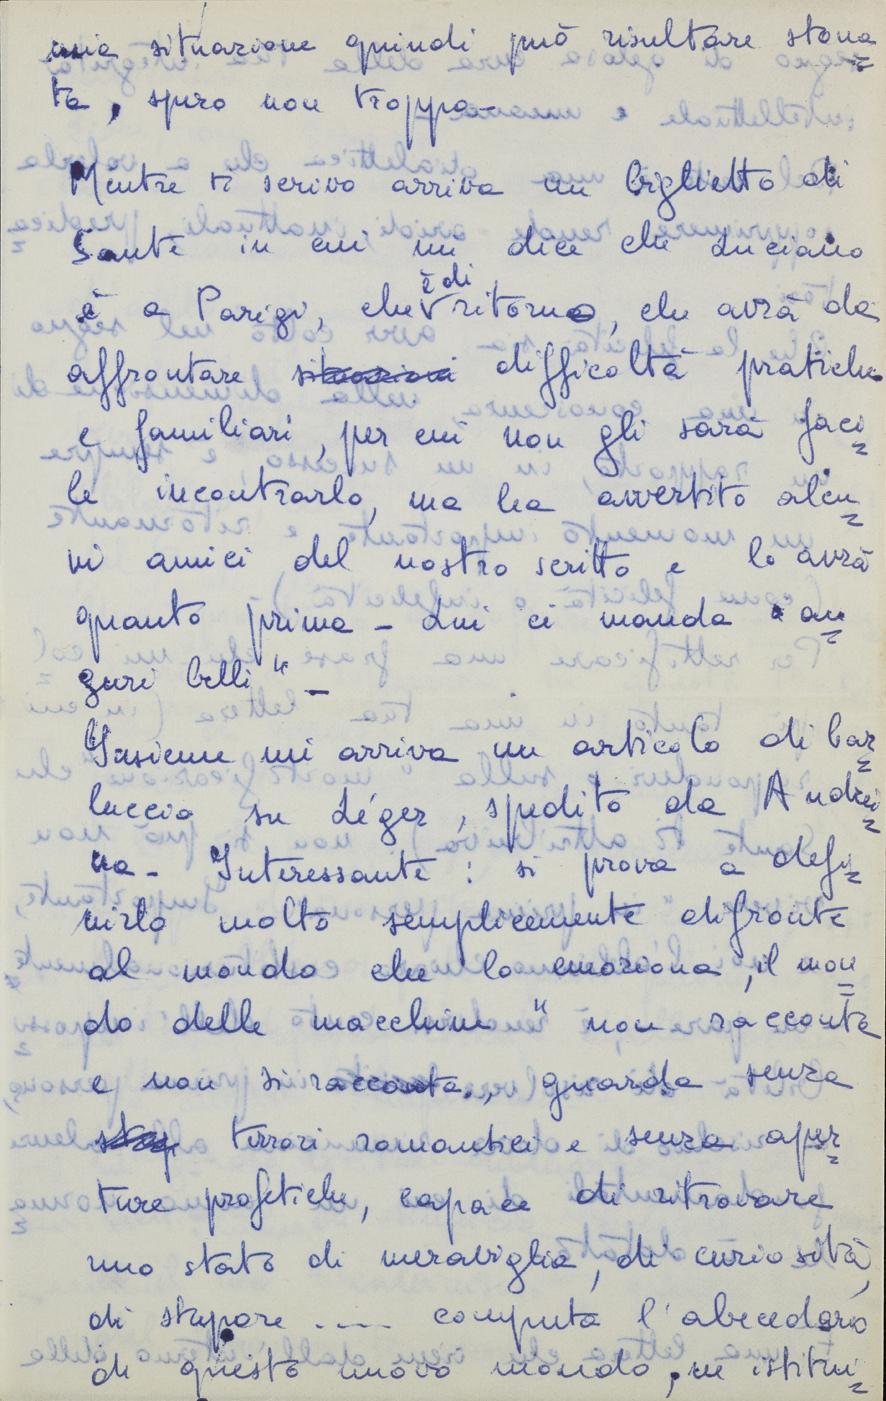 mia situazione quindi può risultare stona=
ta, spero non troppo -
Mentre ti scrivo arriva un biglietto di
Sante in cui mi dice che Luciano
è a Parigi, che è di ritorno, che avrà da
affrontare situazioni difficoltà pratiche
e familiari, per cui non gli sarà faci=
le incontrarlo, ma ha avvertito alcu=
ni amici del nostro scritto e lo avrà
quanto prima - Lui ci manda "au=
guri belli" -
Insieme mi arriva un articolo di Bar=
luccia su Léger, spedito da Andrei=
na - Interessante: si prova a defi=
nirlo molto semplicemente difronte
al mondo che lo emoziona, il mon=
do delle macchine "non racconta
e non si racconta, guarda senza
terrori romantici e senza aper=
ture profetiche, capace di ritrovare
uno stato di meraviglia, di curiosità,
di stupore .... computa l'abecedario
di questo nuovo mondo, ne istitui=